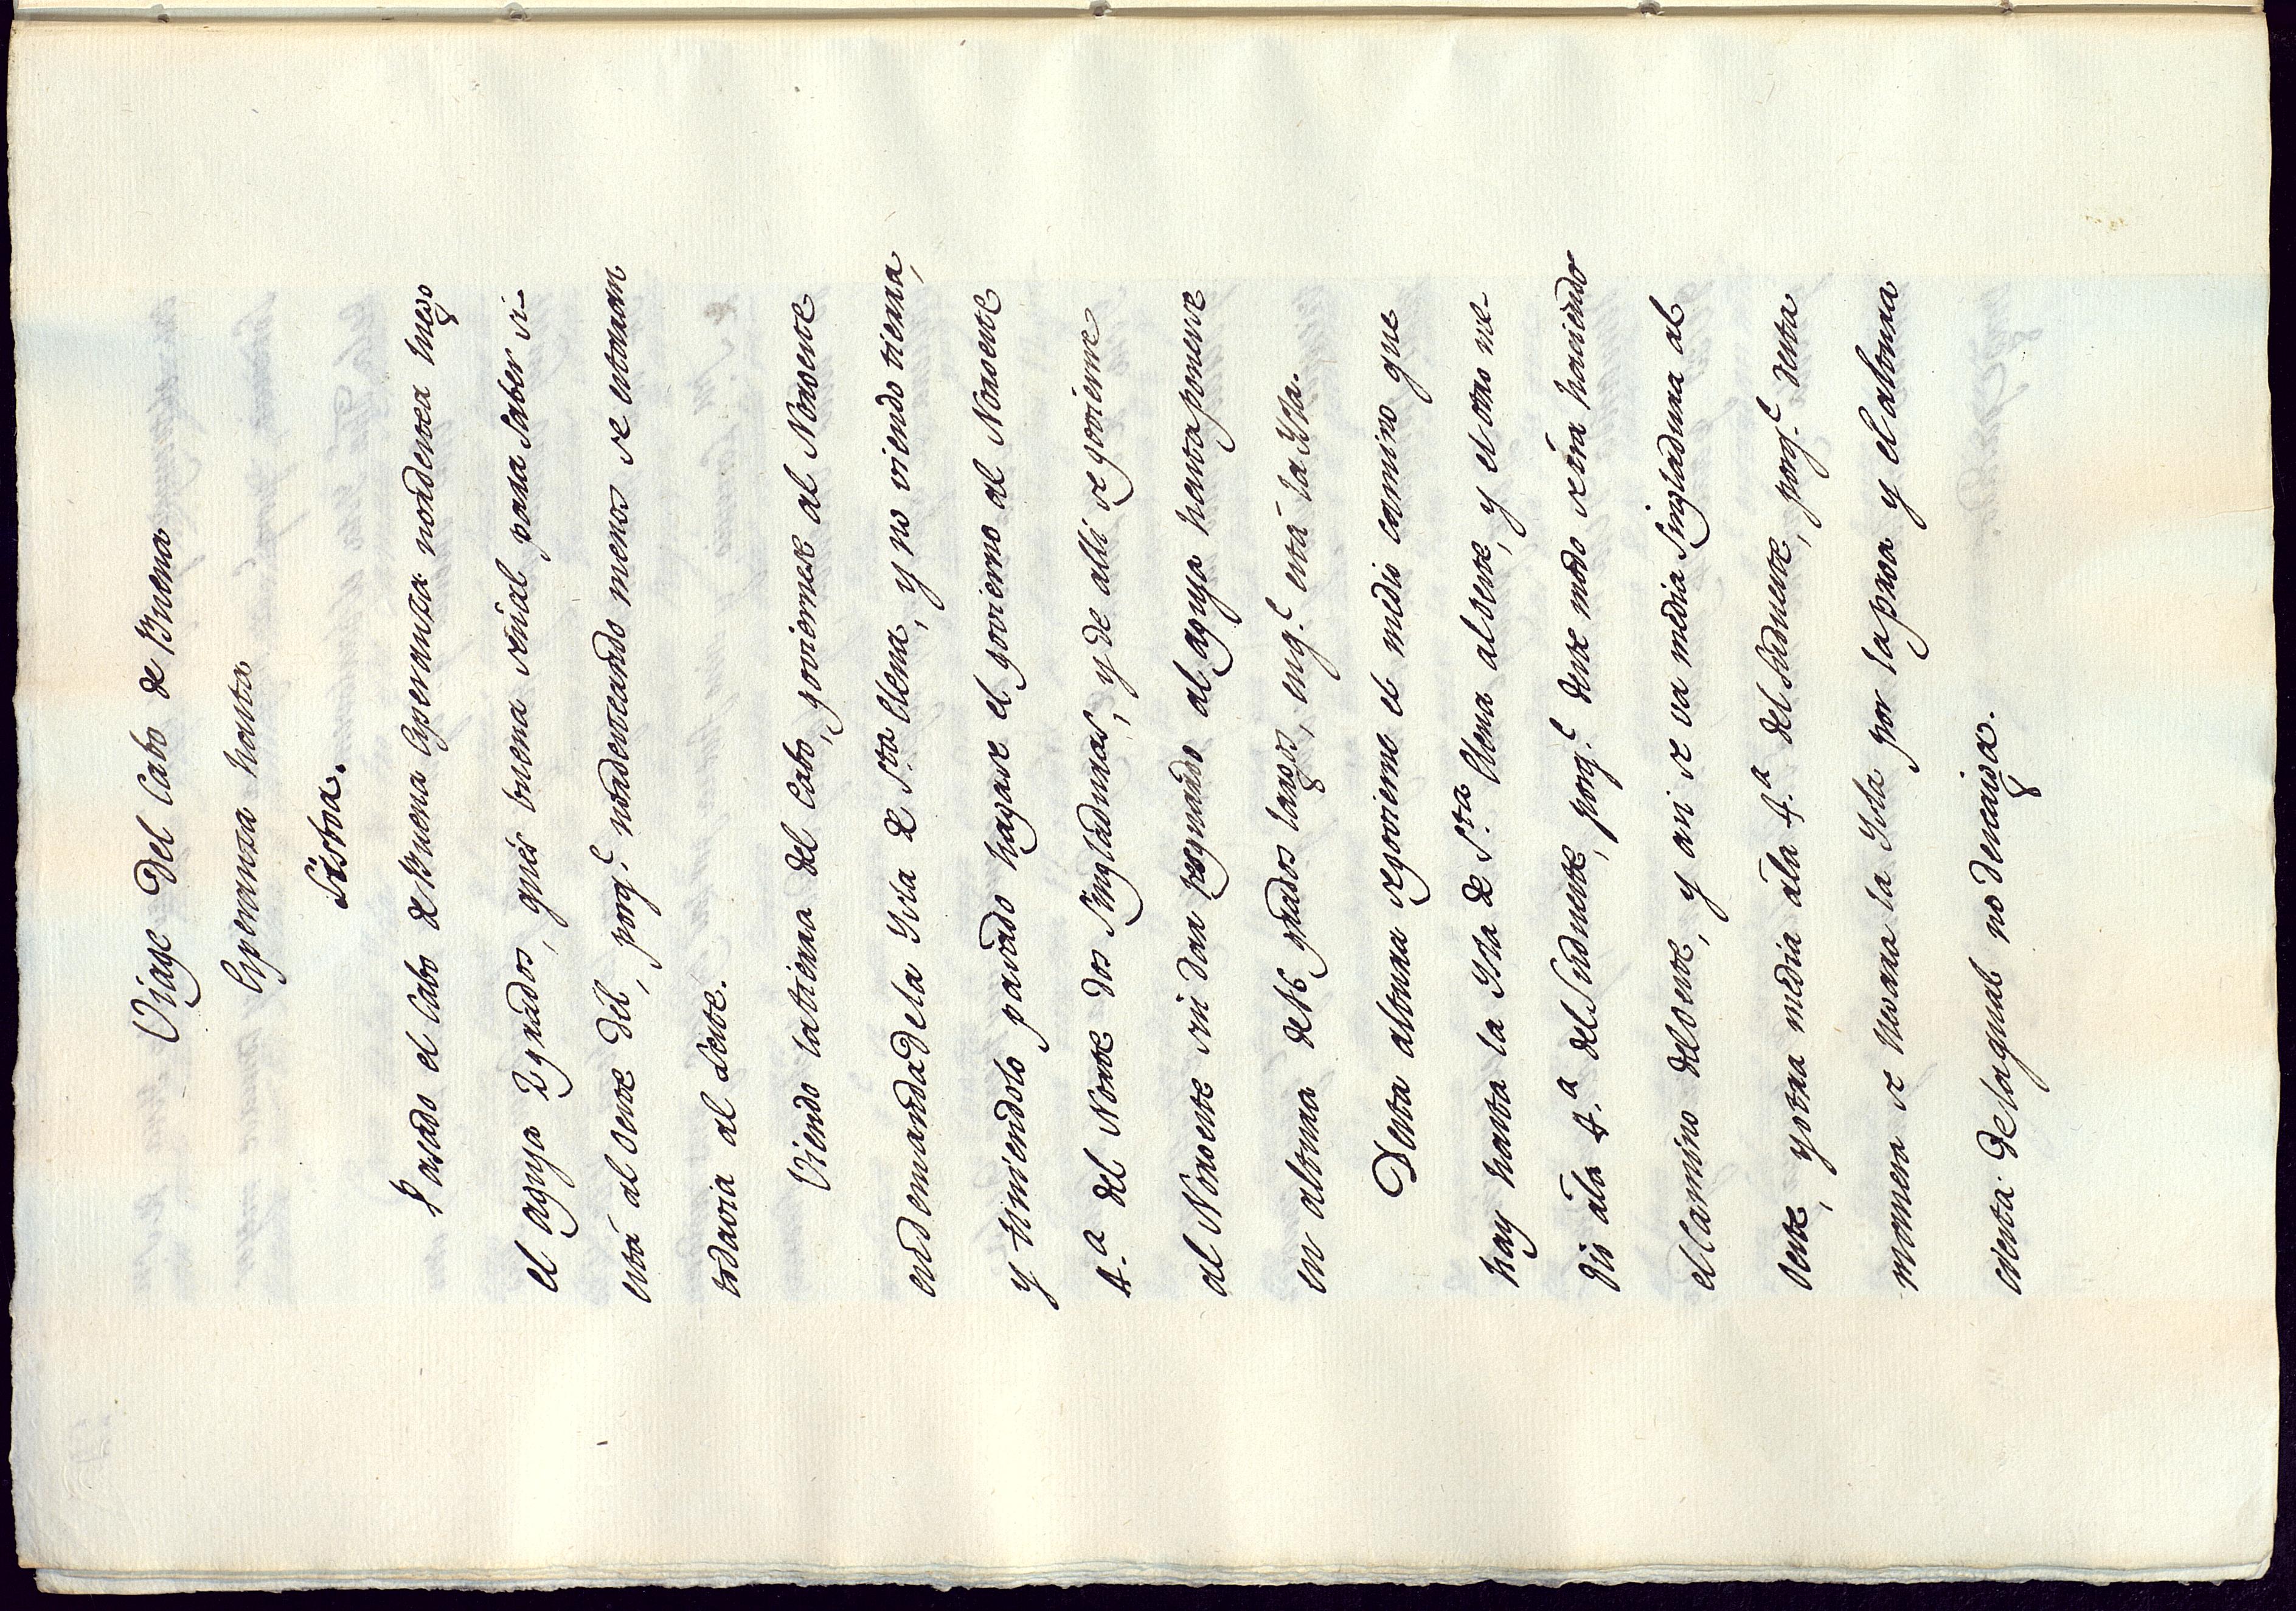 Viage del Cabo de Buena
Esperanza hasta
Lisboa.
Pasado el Cabo de Buena Esperanza nordestea luego
el aguja 2 grados, qués buena señal para saber si
está al oeste dél, porq.e nordesteando menos se estaran
todavia al Leste.
Viendo la tierra del Cabo, goviernese al Noroeste
en demanda de la Ysla de S.ta Elena, y no viendo tierra,
y teniendolo pasado hagase el govierno al Noroeste
4.a del Norte dos Singladuras, y de alli se govierne
al Noroeste sin dar resguardo al aguja hasta ponerse
en altura de 16 grados largos, en q.e está la Ysla.
Desta altura se govierne el medio camino que
hay hasta la Ysla de S.ta Elena al oeste, y el otro me-
dio á la 4.a del Sudueste, porq.e deste modo se irá haciendo
el Camino del oeste, y asi se va media Singladura al
oeste, y otra media á la 4.a del Sudueste, porq.e desta
manera se llevara la Ysla por la proa y el altura
cierta de la qual no decaiga.